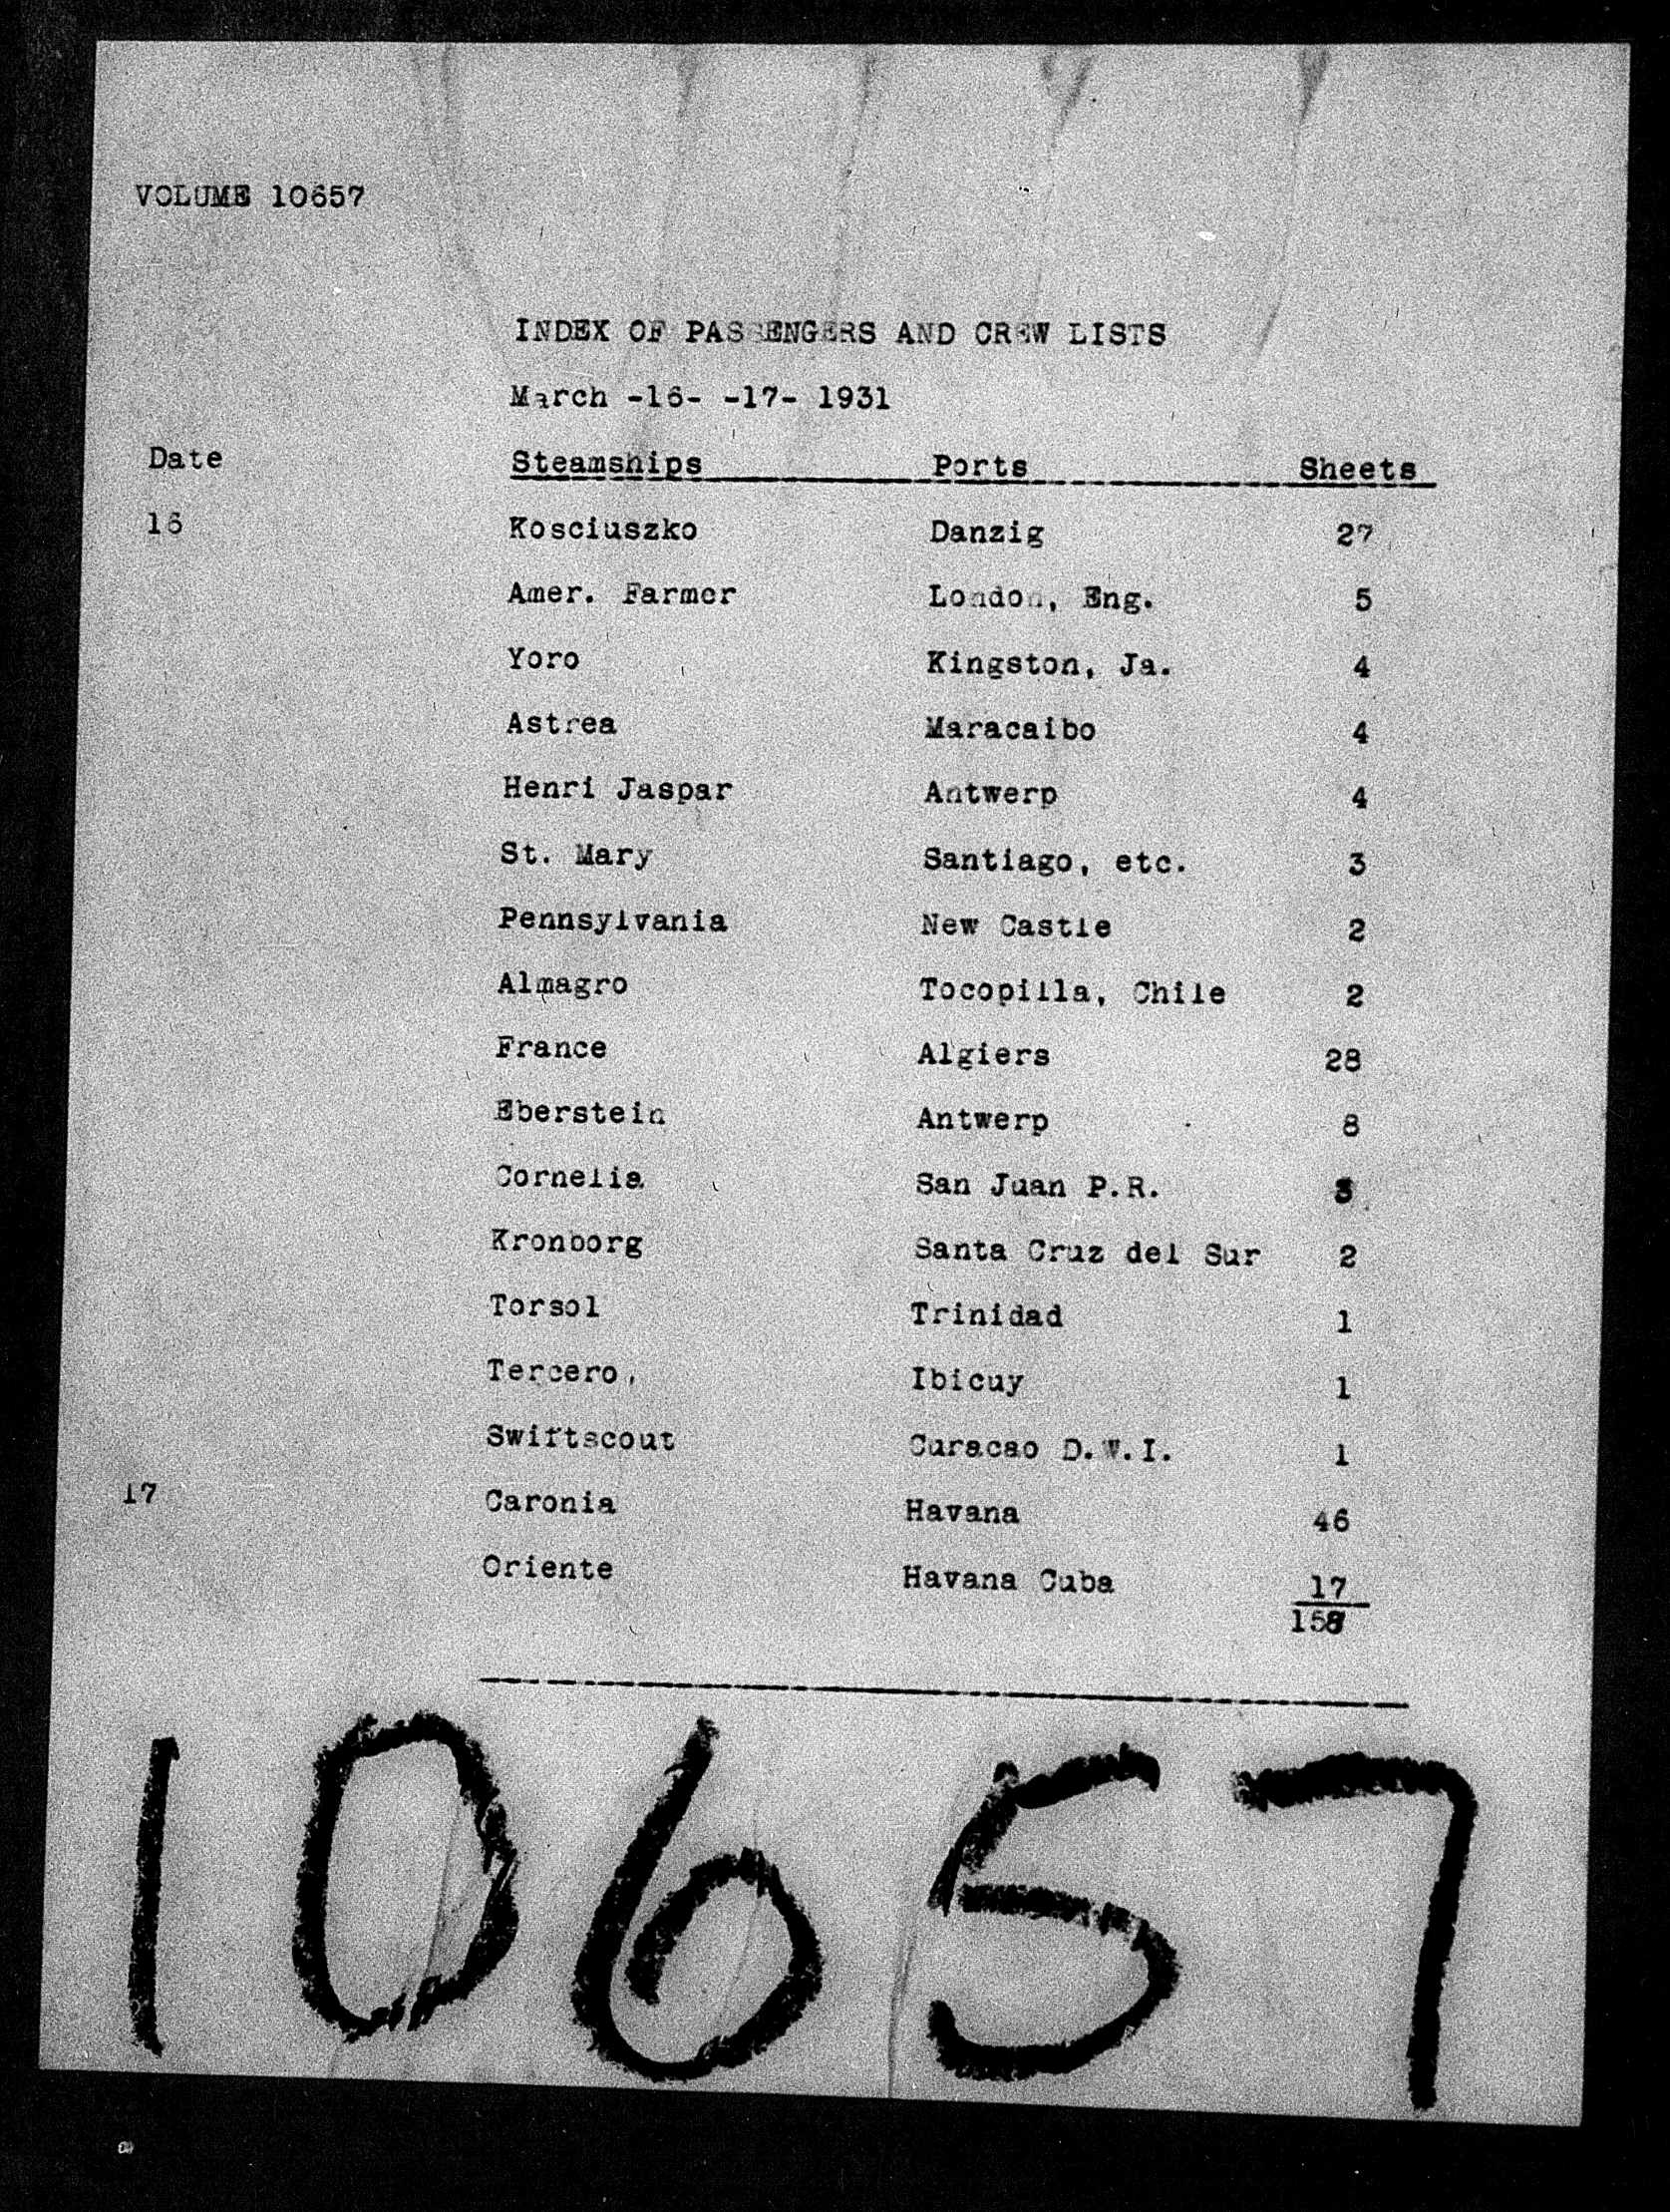 VOLUME 10657
INDEX OF PASSENGERS AND CREW LISTS
March -16- -17- 1931
Date Steamships Ports Sheets
16 Kosciuszko Danzig 27
Amer. Farmer London, Eng. 5
Yoro Kingston, Ja. 4
Astrea Maracaibo 4
Henri Jaspar Antwerp 4
St. Mary Santiago, etc. 3
Pennsylvania New Castle 2
Almagro Tocopilla, Chile 2
France Algiers 28
Eberstein Antwerp 8
Cornelia San Juan P.R. 3
Kronborg Santa Cruz del Sur 2
Torsol Trinidad 1
Tercero, Ibicuy 1
Swiftscout Curacao D.W.I. 1
17 Caronia Havana 46
Oriente Havana Cuba 17
158
10657